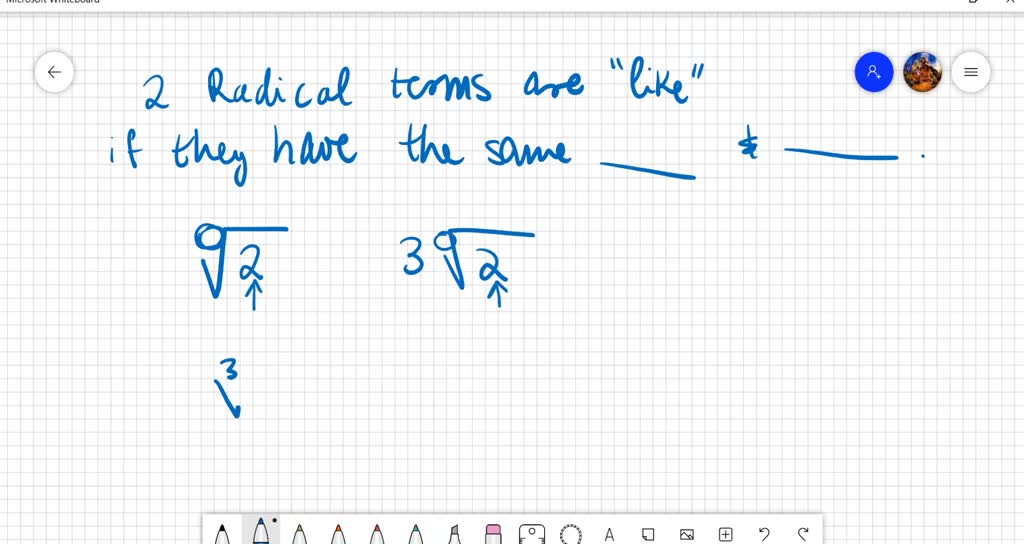 Microsoft Whiteboard
2 Radical terms are "like"
if they have the same ____ & ____.
√2 3√2
3
A